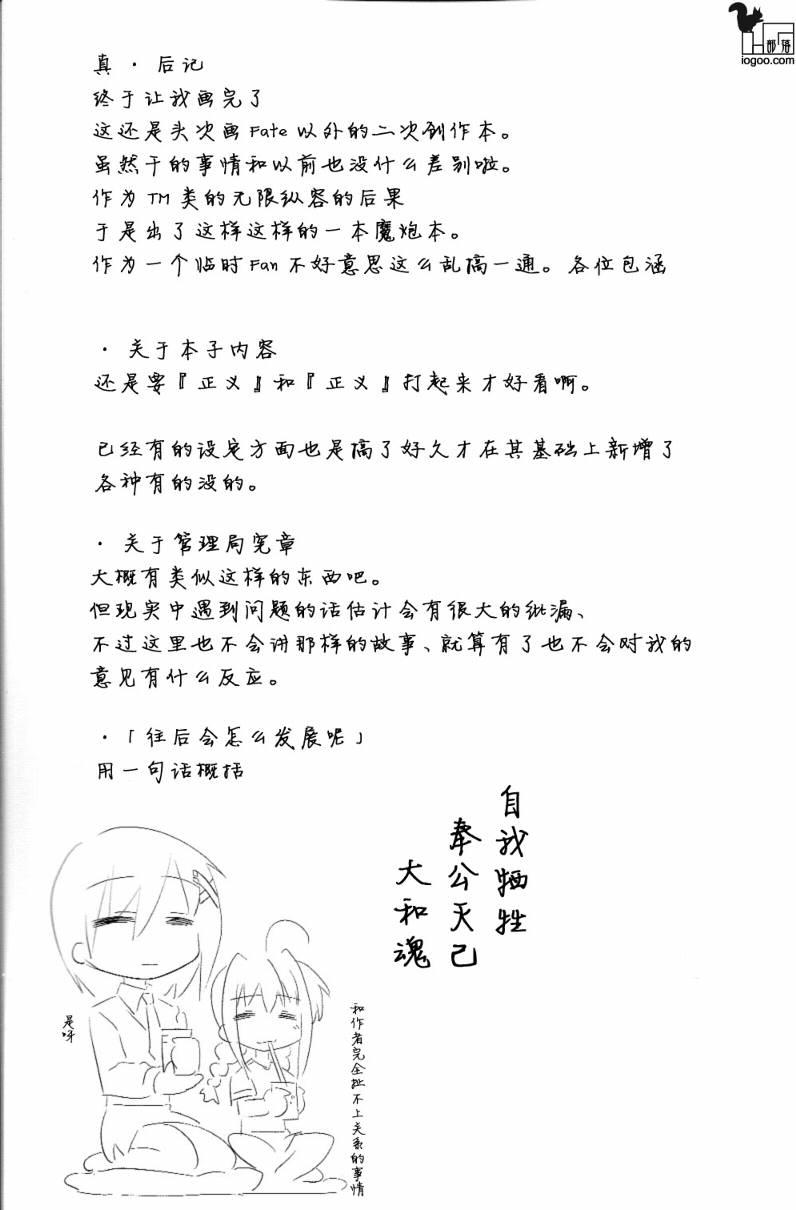 部落
iogoo.com
真・后记
终于让我画完了
这还是头次画Fate以外的二次创作本。
虽然干的事情和以前也没什么差别啦。
作为TM类的无限纵容的后果
于是出了这样这样的一本魔炮本。
作为一个临时Fan不好意思这么乱搞一通。各位包涵
・关于本子内容
还是要『正义』和『正义』打起来才好看啊。
已经有的设定方面也是搞了好久才在其基础上新增了
各种有的没的。
・关于管理局宪章
大概有类似这样的东西吧。
但现实中遇到问题的话估计会有很大的纰漏、
不过这里也不会讲那样的故事、就算有了也不会对我的
意见有什么反应。
・「往后会怎么发展呢」
用一句话概括
自我牺牲
奉公灭己
大和魂
和作者完全扯不上关系的事情
是呀